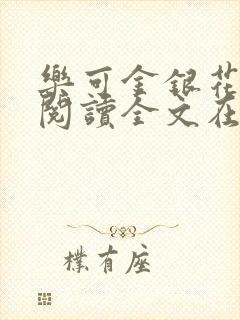 樂可金銀花
閱讀全文在
樸有座